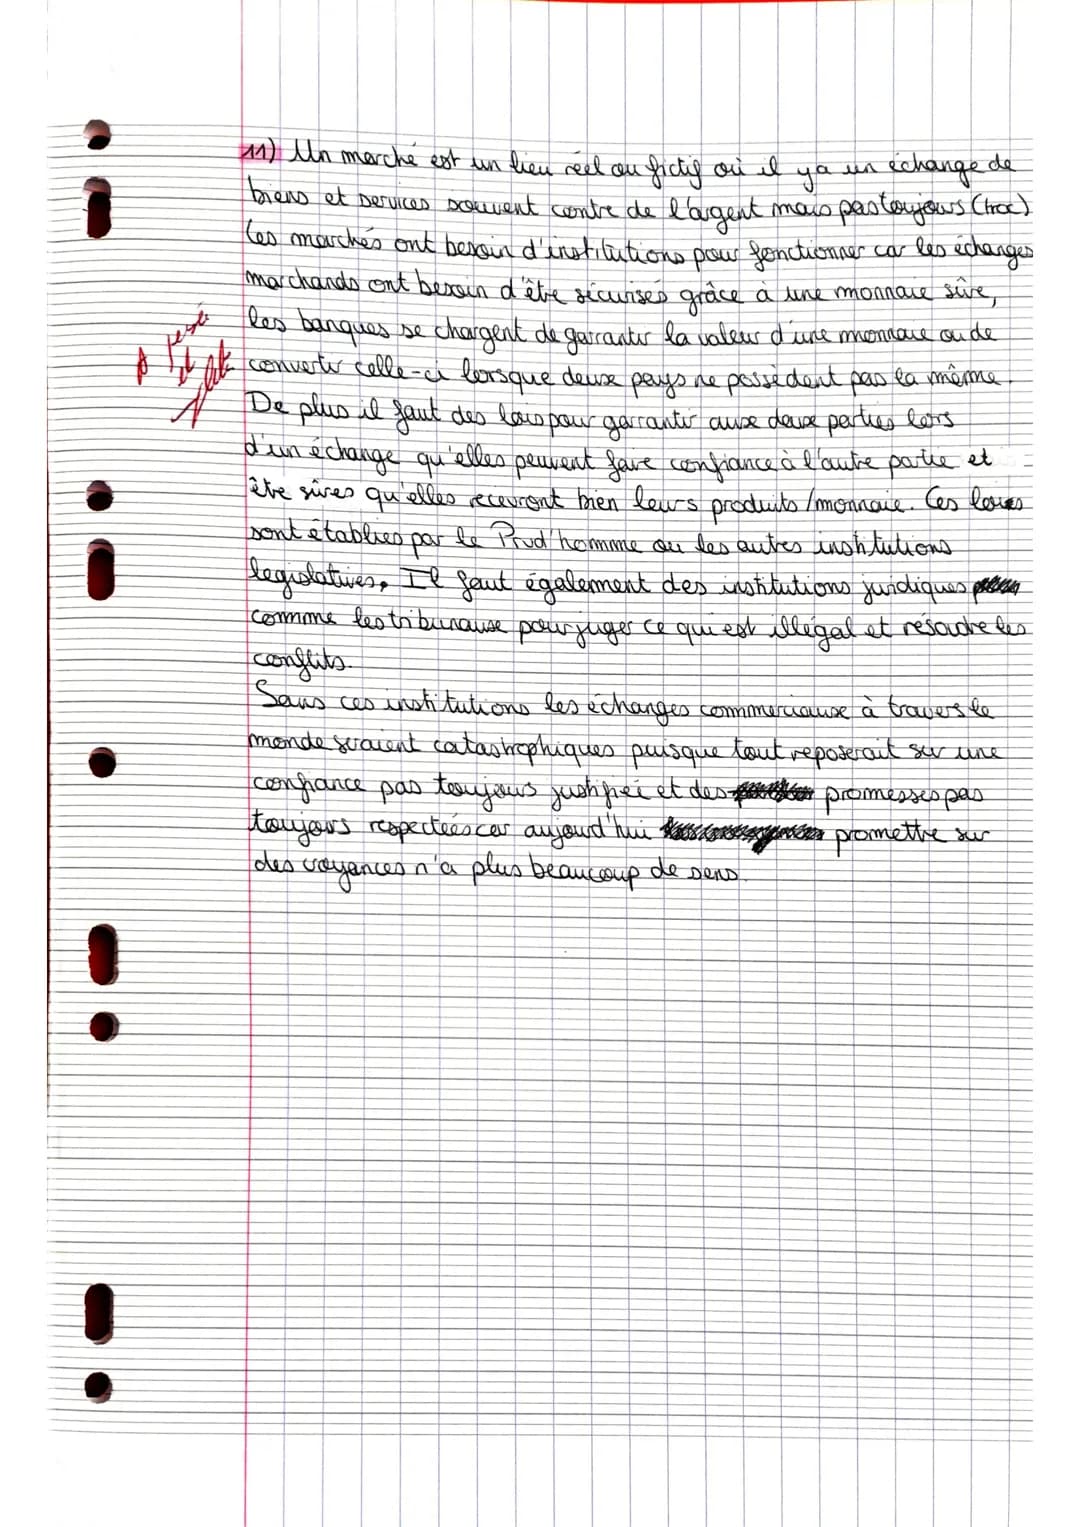 11) Un marché est un lieu réel ou fictif où il y a un échange de
biens et services souvent contre de l'argent mais pas toujours (troc)
Ces marchés ont besoin d'institutions pour fonctionner car les échanges
marchands ont besoin d'être sécurisés grâce à une monnaie sûre,
les banques se chargent de garrantir la valeur d'une monnaie ou de
convertir celle-ci lorsque deux pays ne possèdent pas la même.
De plus il faut des lois pour garrantir aux deux parties lors
d'un échange qu'elles peuvent faire confiance à l'autre partie et
être sûres qu'elles recevront bien leurs produits / monnaie. Ces lois
sont établies par le Prud'homme ou les autres institutions
legislatives, Il faut également des institutions juridiques
comme les tribunaux pour juger ce qui est illégal et résoudre les
conflits.
Sans ces institutions les échanges commerciaux à travers le
monde seraient catastrophiques puisque tout reposerait sur une
confiance pas toujours justifiée et des promesses pas
toujours respectées car aujourd'hui promettre sur
des croyances n'a plus beaucoup de sens.